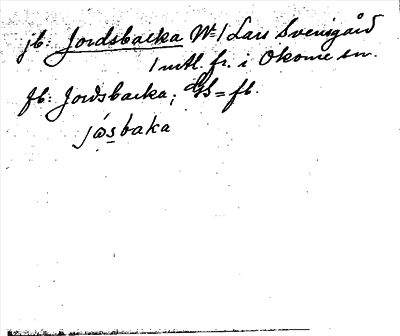 jb: Jordsbacka W= / Lars Svensgård
/ utl. fr. i Okome sn.
fb: Jordsbacka; GS = fb.
jɷ́sbaka